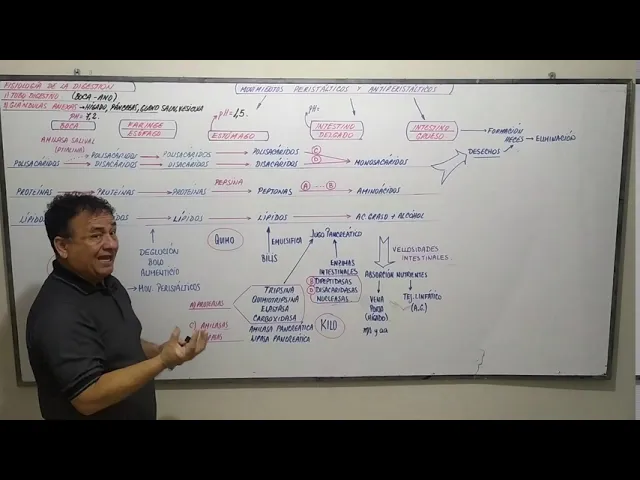 FISIOLOGÍA DE LA DIGESTIÓN
1) TUBO DIGESTIVO (BOCA - ANO)
2) GLÁNDULAS ANEXAS → HÍGADO, PÁNCREAS, GLAND SALIV, VESÍCULA
MOVIMIENTOS PERISTÁLTICOS Y ANTIPERISTÁLTICOS
PH= 7,2
pH= 1,5
pH=
BOCA
FARINGE
ESÓFAGO
ESTÓMAGO
INTESTINO
DELGADO
INTESTINO
GRUESO
→ FORMACIÓN
HECES → ELIMINACIÓN
DESECHOS
AMILASA SALIVAL
(PTIALINA)
POLISACÁRIDOS
POLISACÁRIDOS → POLISACÁRIDOS → POLISACÁRIDOS C
DISACÁRIDOS → DISACÁRIDOS → DISACÁRIDOS D → MONOSACÁRIDOS
PROTEÍNAS → PROTEÍNAS → PROTEÍNAS PEPSINA PEPTONAS A B AMINOÁCIDOS
LÍPIDOS LÍPIDOS → LÍPIDOS → LÍPIDOS AC GRASO + ALCOHOL
DEGLUCIÓN
BOLO
ALIMENTICIO
→ MOV. PERISTÁLTICOS
QUIMO
EMULSIFICA
BILIS
JUGO PANCREÁTICO
ENZIMAS
INTESTINALES
B DIPEPTIDASAS
D DISACARIDASAS
NUCLEASAS
VELLOSIDADES
INTESTINALES
ABSORCIÓN NUTRIENTES
VENA
PORTA
(HÍGADO)
TEJ. LINFÁTICO
(A.G.)
A) PROTEASAS
TRIPSINA
QUIMOTRIPSINA
ELASTASA
CARBOXIDASA
C) AMILASAS
AMILASA PANCREÁTICA
LIPASA PANCREATICA
KILO